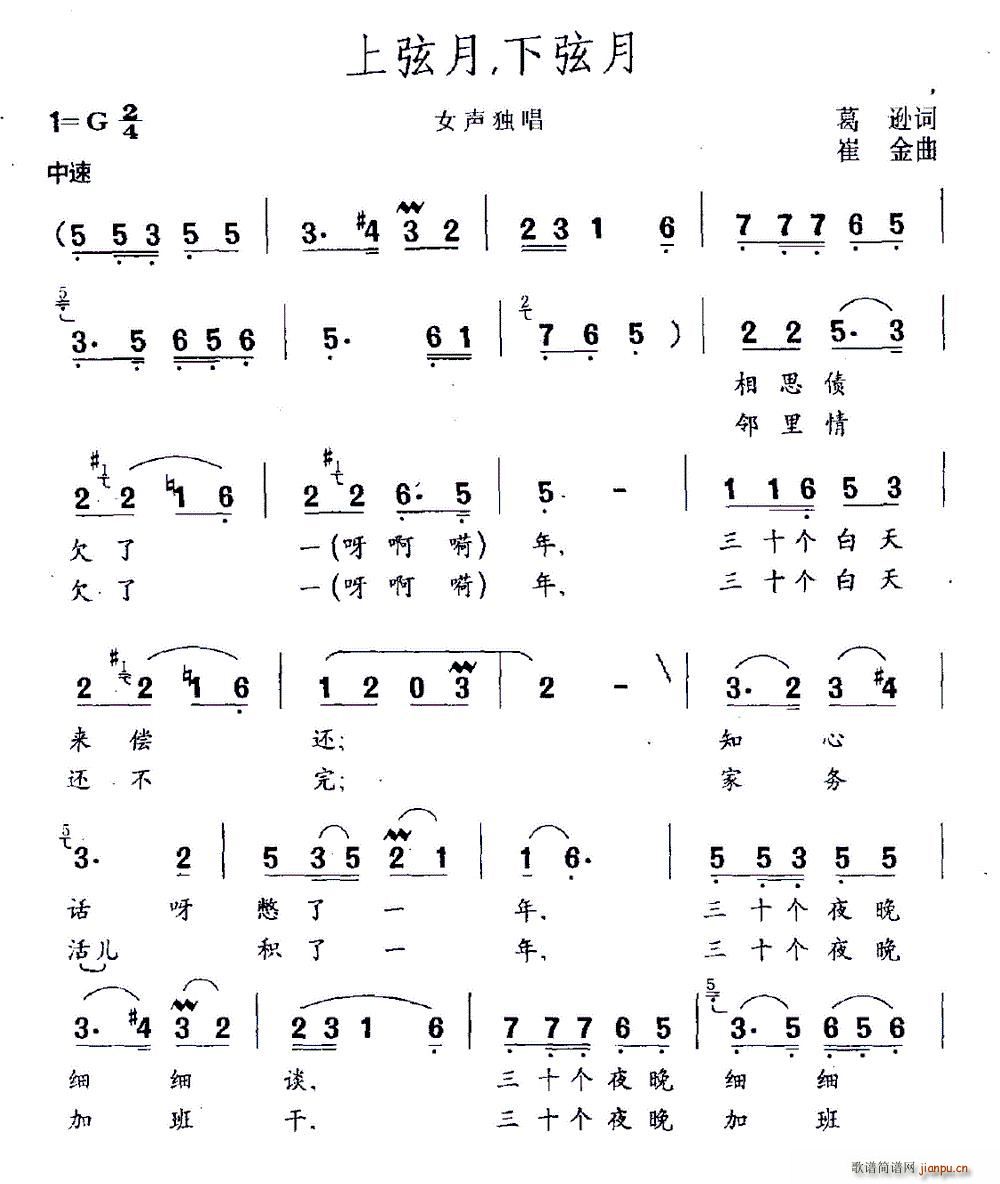 上弦月,下弦月
1=G 2/4
女声独唱
葛 逊词
崔 金曲
中速
(5 5 3 5 5 | 3. #4 3 2 | 2 3 1 6 | 7 7 7 6 5 |
5 3. 5 6 5 6 | 5. 6 1 | 2 7 6 5 ) | 2 2 5. 3
相思债
邻里情
2 #1 2 ♮1 6 | 2 #1 2 6. 5 | 5. - | 1 1 6 5 3
欠了 一(呀啊 嗬)年, 三十个白天
欠了 一(呀啊 嗬)年, 三十个白天
2 #1 2 ♮1 6 | 1 2 0 3 | 2 - \ | 3. 2 3 #4 |
来偿 还; 知心
还不 完; 家务
5 3. 2 | 5 3 5 2 1 | 1 6. | 5 5 3 5 5 |
话呀 憋了一 年, 三十个夜晚
活儿 积了一 年, 三十个夜晚
3. #4 3 2 | 2 3 1 6 | 7 7 7 6 5 | 5 3. 5 6 5 6 |
细细 谈, 三十个夜晚 细细
加班 干, 三十个夜晚 加班
歌谱简谱网 jianpu.cn